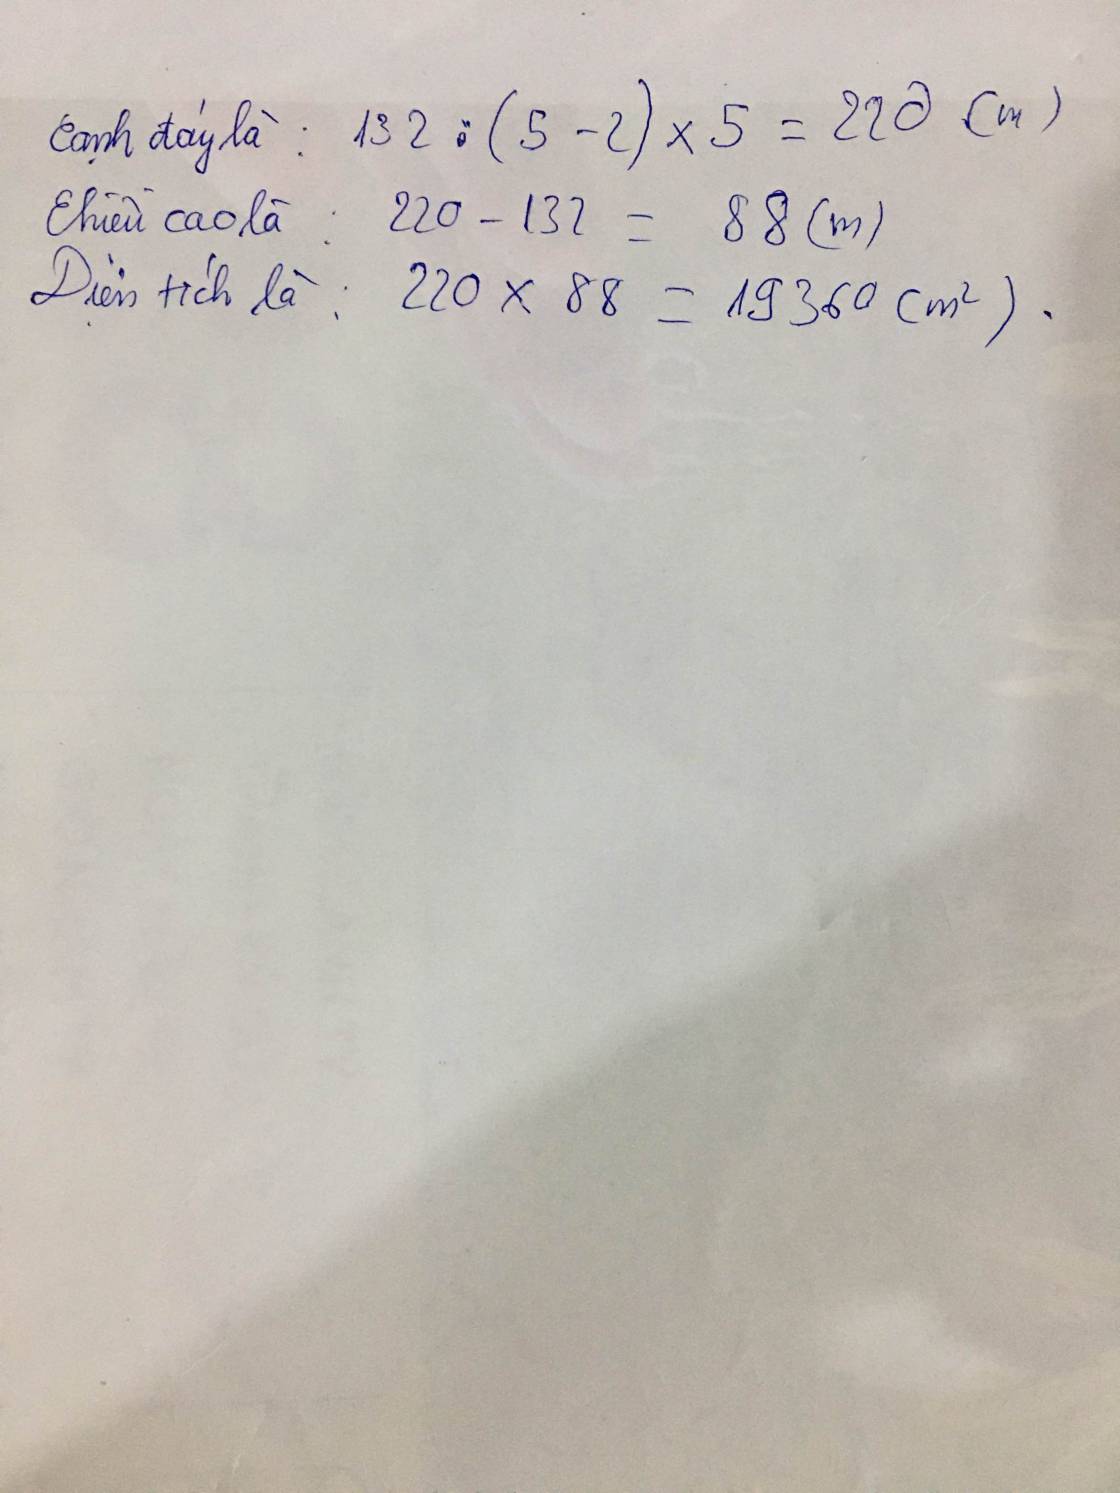 Cạnh đáy là : 132 : (5 - 2) × 5 = 220 (m)
Chiều cao là : 220 - 132 = 88 (m)
Diện tích là : 220 × 88 = 19360 (m²).